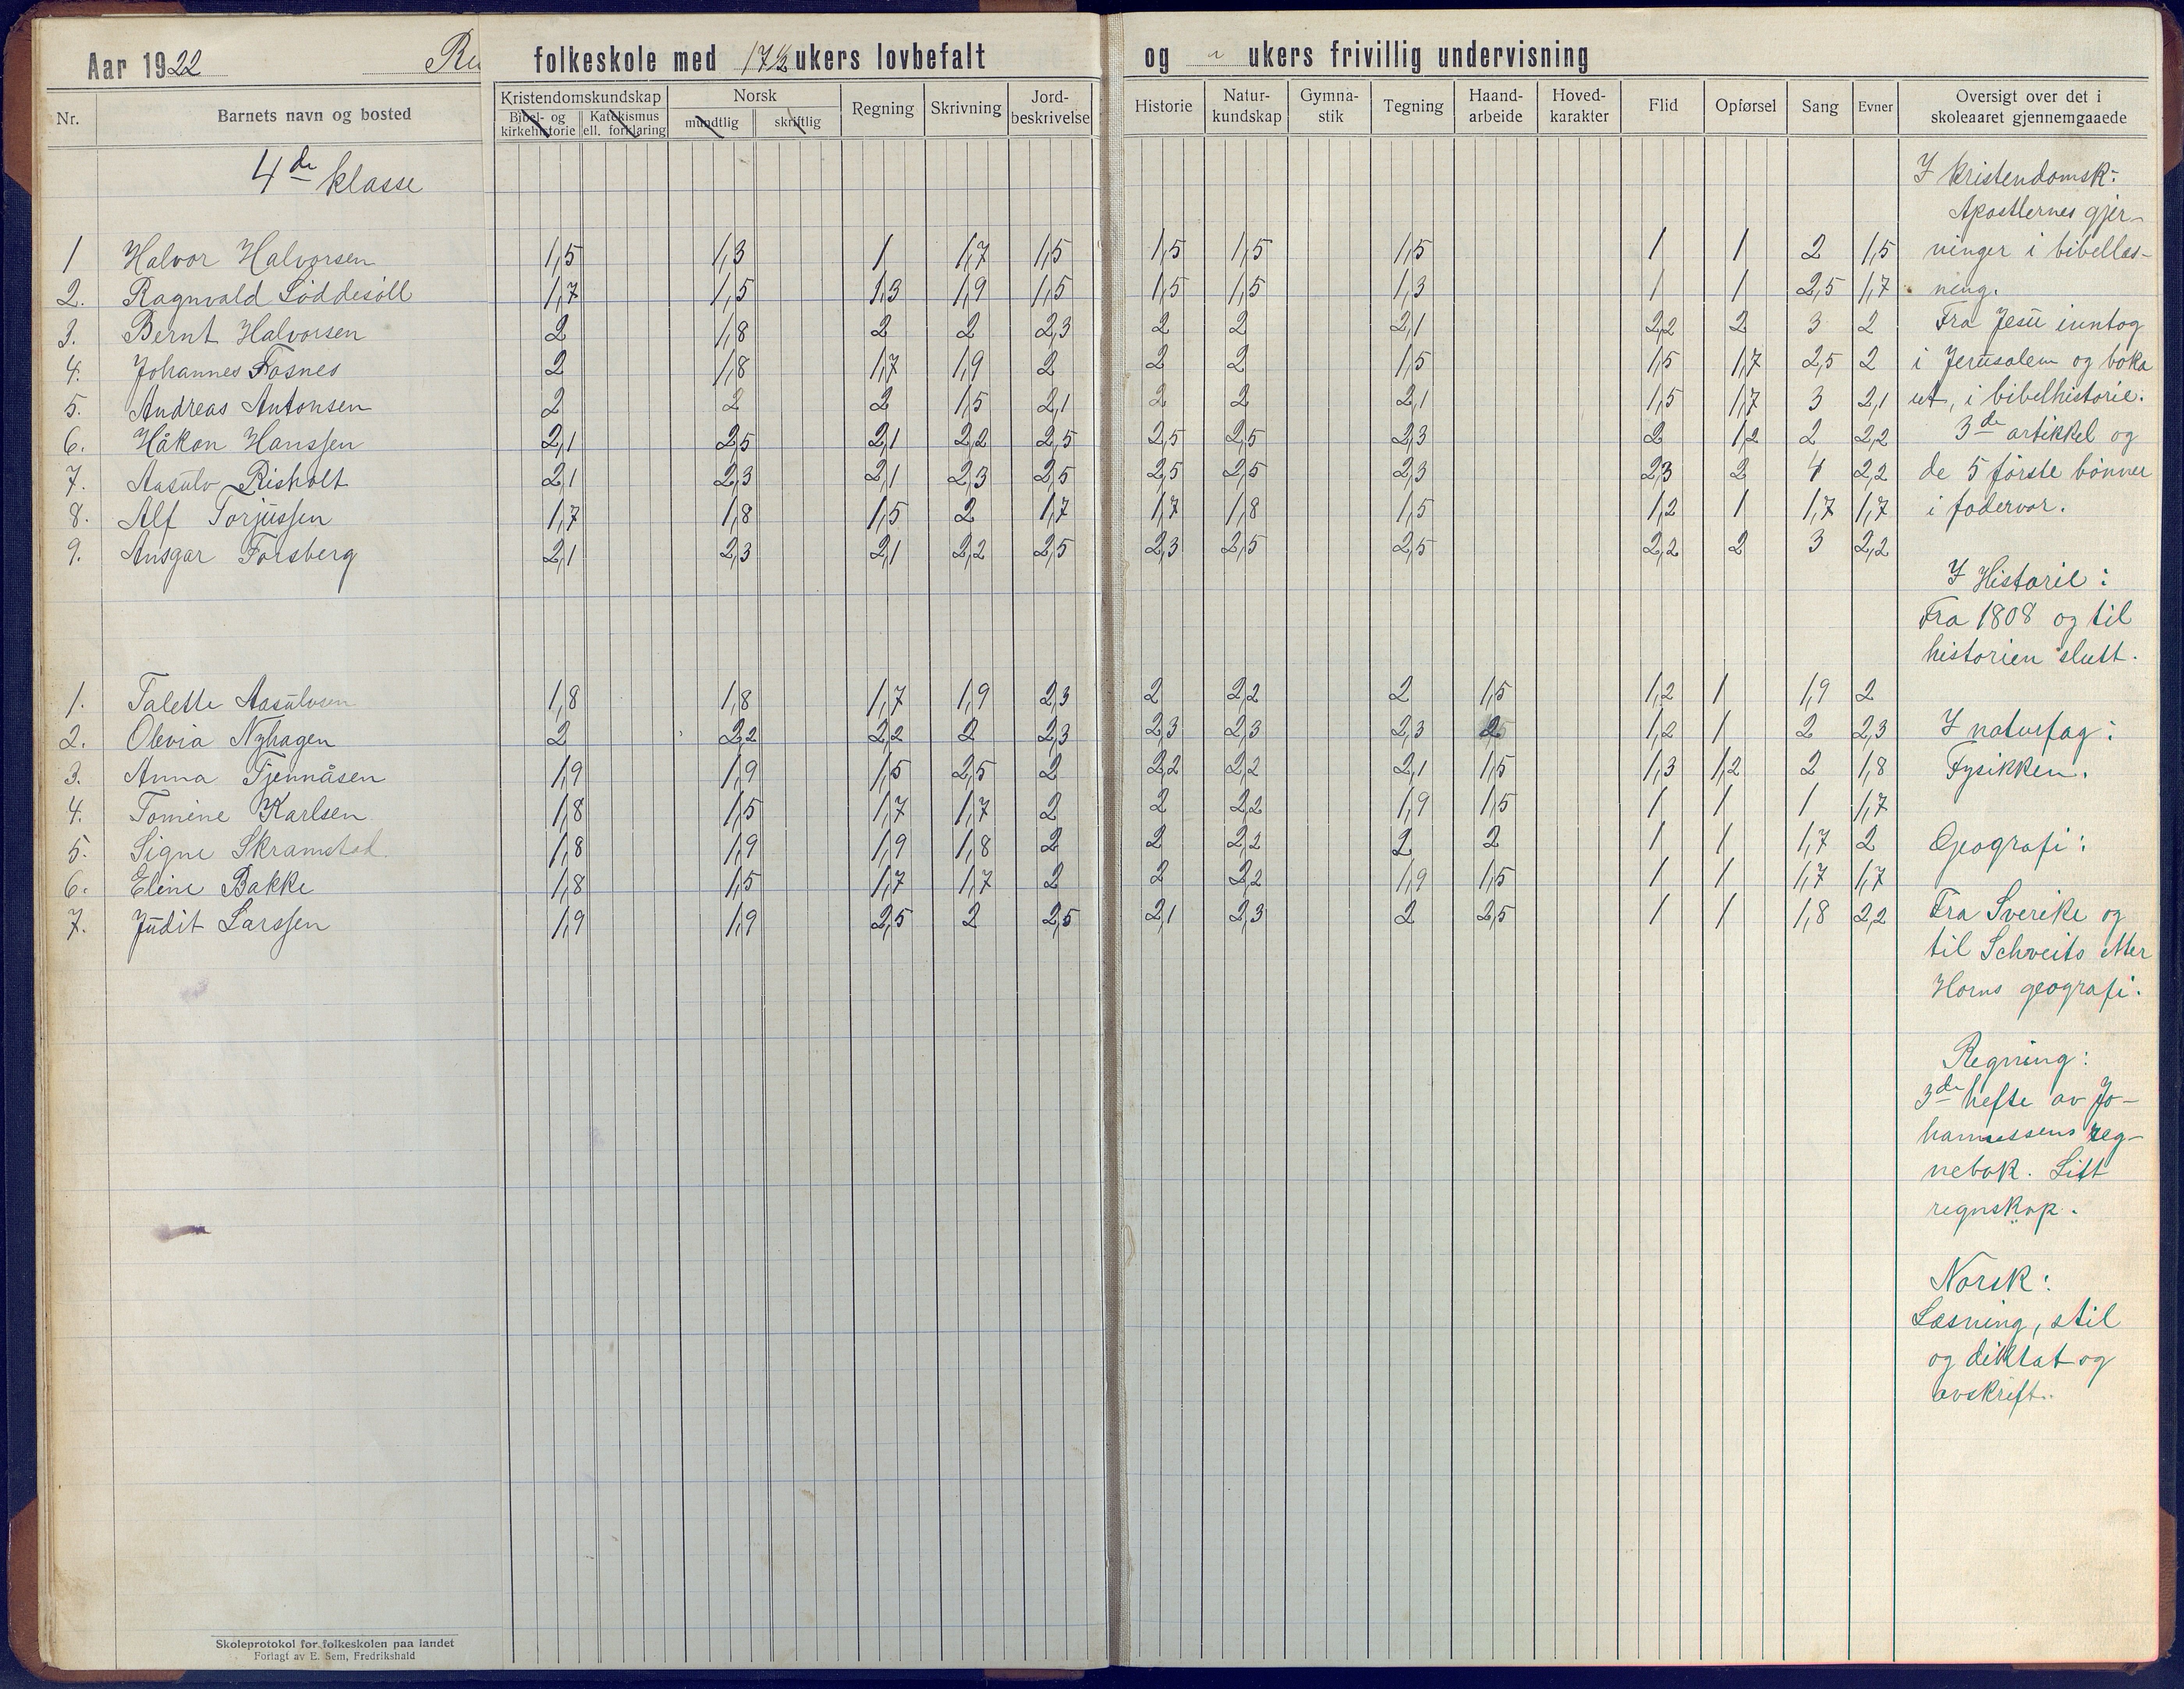 Aar 1922 Ru folkeskole med 17 1/2 ukers lovbefalt og " ukers frivillig undervisning
Nr. Barnets navn og bosted Kristendomskundskap Norsk Regning Skrivning Jord-beskrivelse Historie Natur-kundskap Gymna-stik Tegning Haand-arbeide Hoved-karakter Flid Opførsel Sang Evner Oversigt over det i skoleaaret gjennemgaaede
Bibel- og kirkehistorie Katekismus ell. forklaring mundtlig skriftlig
4de klasse
1 Halvor Halvorsen 1,5 1,3 1 1,7 1,5 1,5 1,5 1,5 1 1 2 1,5
2. Ragnvald Løddesøll 1,7 1,5 1,3 1,9 1,5 1,5 1,5 1,3 1 1 2,5 1,7
3. Bernt Halvorsen 2 1,8 2 2 2,3 2 2 2,1 2,2 2 3 2
4. Johannes Fosnes 2 1,8 1,7 1,9 2 2 2 1,5 1,5 1,7 2,5 2
5. Andreas Antonsen 2 2 2 1,5 2,1 2 2 2,1 1,5 1,7 3 2,1
6. Håkon Hanssen 2,1 2,5 2,1 2,2 2,5 2,5 2,5 2,3 2 1,2 2 2,2
7. Aasulv Risholt 2,1 2,3 2,1 2,3 2,5 2,5 2,5 2,3 2,3 2 4 2,2
8. Alf Torjussen 1,7 1,8 1,5 2 1,7 1,7 1,8 1,5 1,2 1 1,7 1,7
9. Ansgar Forsberg 2,1 2,3 2,1 2,2 2,5 2,3 2,5 2,5 2,2 2 3 2,2
1. Talette Aasulvsen 1,8 1,8 1,7 1,9 2,3 2 2,2 2 1,5 1,2 1 1,9 2
2. Olevia Nyhagen 2 2,2 2,2 2 2,3 2,3 2,3 2,3 2 1,2 1 2 2,3
3. Anna Tjennåsen 1,9 1,9 1,5 2,5 2 2,2 2,2 2,1 1,5 1,3 1,2 2 1,8
4. Tomine Karlsen 1,8 1,5 1,7 1,7 2 2 2,2 1,9 1,5 1 1 1 1,7
5. Signe Skramstad 1,8 1,9 1,9 1,8 2 2 2,2 2 2 1 1 1,7 2
6. Eline Bakke 1,8 1,5 1,7 1,7 2 2 2,2 1,9 1,5 1 1 1,7 1,7
7. Judit Larssen 1,9 1,9 2,5 2 2,5 2,1 2,3 2 2,5 1 1 1,8 2,2
I kristendomsk:
Apostlernes gjer-
ninger i bibellæs-
ning.
Fra Jesu inntog
i Jerusalem og boka
ut, i bibelhistorie.
3de artikkel og
de 5 første bønner
i fadervor.
I Historie:
Fra 1808 og til
historien slutt.
I naturfag:
Fysikken.
Geografi:
Fra Sverike og
til Schveits etter
Horns geografi.
Regning:
3de hefte av Jo-
hannessens reg-
nebok. Litt
regnskap.
Norsk:
Læsning, stil
og diktat og
avskrift.
Skoleprotokol for folkeskolen paa landet
Forlagt av E. Sem, Fredrikshald